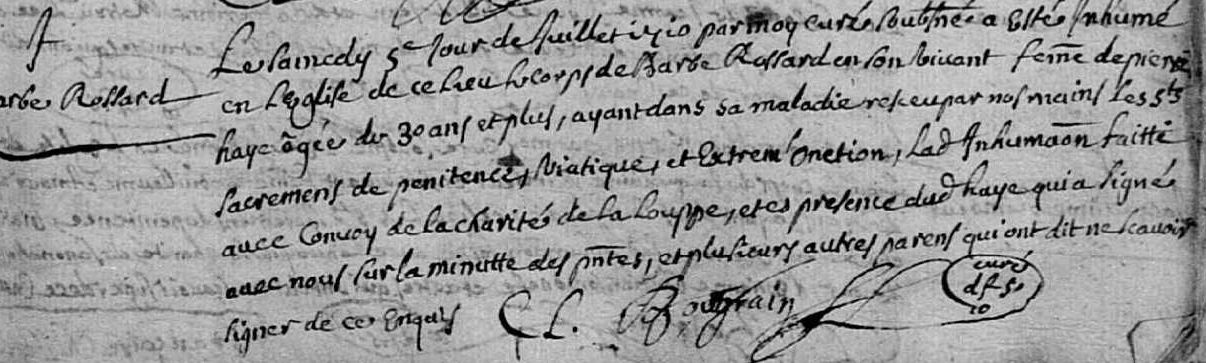 Le samedy 5e Jour de Juillet 1710 par moy curé soubsné a Estés Inhumé
arbe Rossard
en l'Eglise de ce lieu le corps de Barbe Rossard en son vivant fem̃e de pierre
haye âgée de 30 ans et plus, ayant dans sa maladie reçeu par nos mains les Sts
sacremens de penitence, Viatique, et Extrem' Onction, Lad Inhumaõn faitte
avec Convoy de la charité de la Louppe, et es presence dud haye qui a signé
avec nous sur la minutte des pñtes, et plusieurs autres parens qui ont dit ne scavoir
signer de ce Enquis
curé